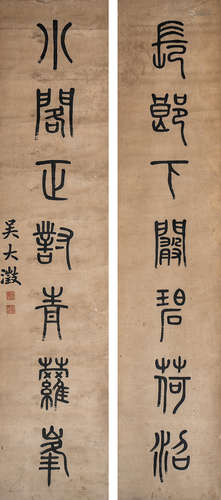 長郎下闞碧荷沼
水閣正對青蘿峯
吳大澂